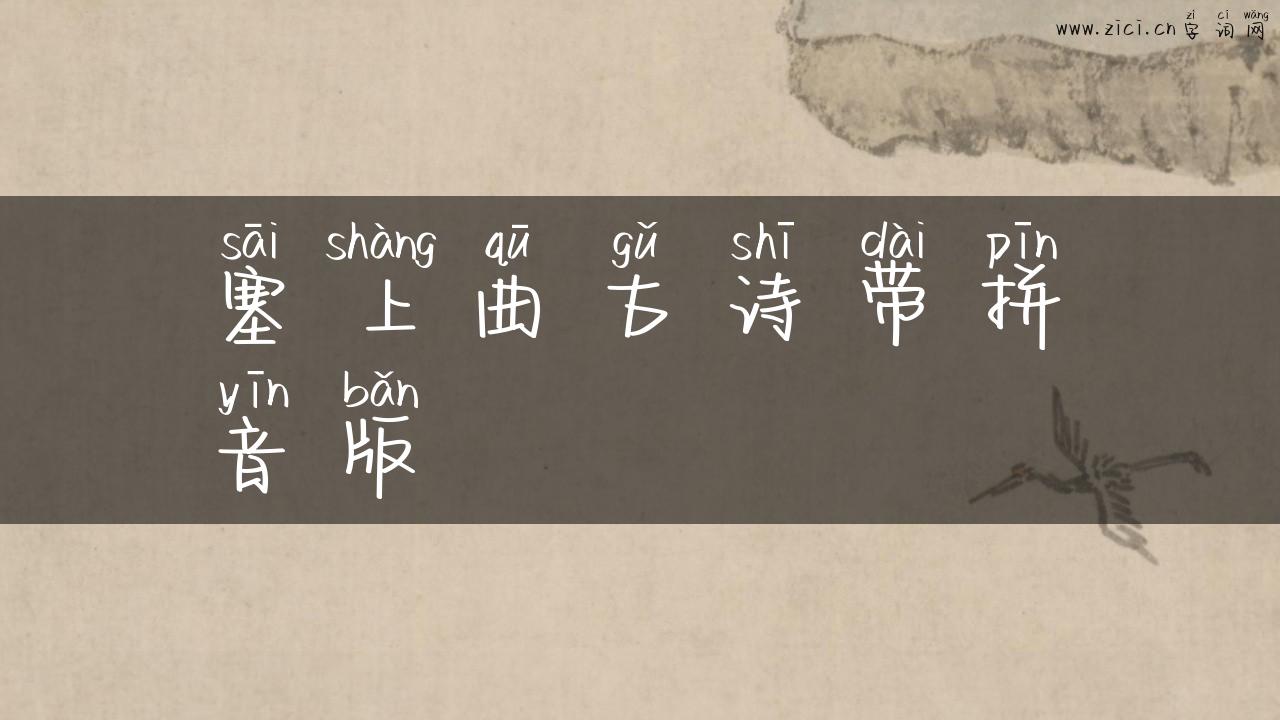 zi ci wǎng
www.zici.cn 字 词 网
sāi shàng qū gǔ shī dài pīn
塞 上 曲 古 诗 带 拼
yīn bǎn
音 版